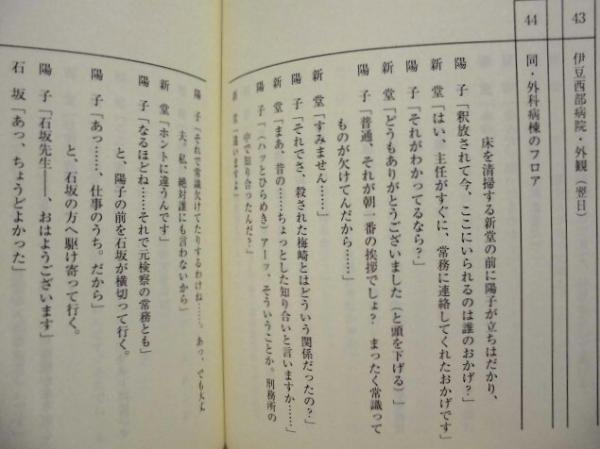 43
伊豆西部病院・外観（翌日）
44
同・外科病棟のフロア
床を清掃する新堂の前に陽子が立ちはだかり、
陽　子「釈放されて今、ここにいられるのは誰のおかげ?」
新　堂「はい、主任がすぐに、常務に連絡してくれたおかげです」
陽　子「それがわかってるなら?」
新　堂「どうもありがとうございました（と頭を下げる）」
陽　子「普通、それが朝一番の挨拶でしょ?　まったく常識って
ものが欠けてんだから……」
新　堂「すみません……」
陽　子「それでさ、殺された梅崎とはどういう関係だったの?」
新　堂「まあ、昔の……ちょっとした知り合いと言いますか……」
陽　子「（ハッとひらめき）アーッ、そういうことか。刑務所の
中で知り合ったんだ?」
新　堂「違いますよ」
陽　子「それで常識欠けてたりするわけね……。あっ、でも大丈
夫。私、絶対誰にも言わないから」
新　堂「ホントに違うんです」
陽　子「なるほどね……それで元検察の常務とも」
と、陽子の前を石坂が横切って行く。
陽　子「あっ……、仕事のうち。だから」
と、石坂の方へ駆け寄って行く。
陽　子「石坂先生――、おはようございます」
石　坂「あっ、ちょうどよかった」